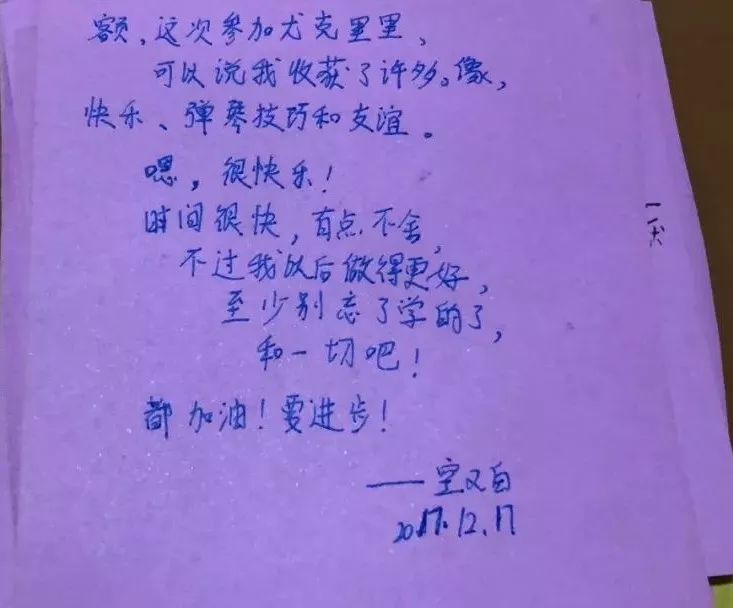 额，这次参加尤克里里，
可以说我收获了许多。像，
快乐、弹琴技巧和友谊。
嗯，很快乐！
时间很快，有点不舍，
不过我以后做得更好，
至少别忘了学的了，
和一切吧！
都加油！要进步！
——空又白
2017.12.17